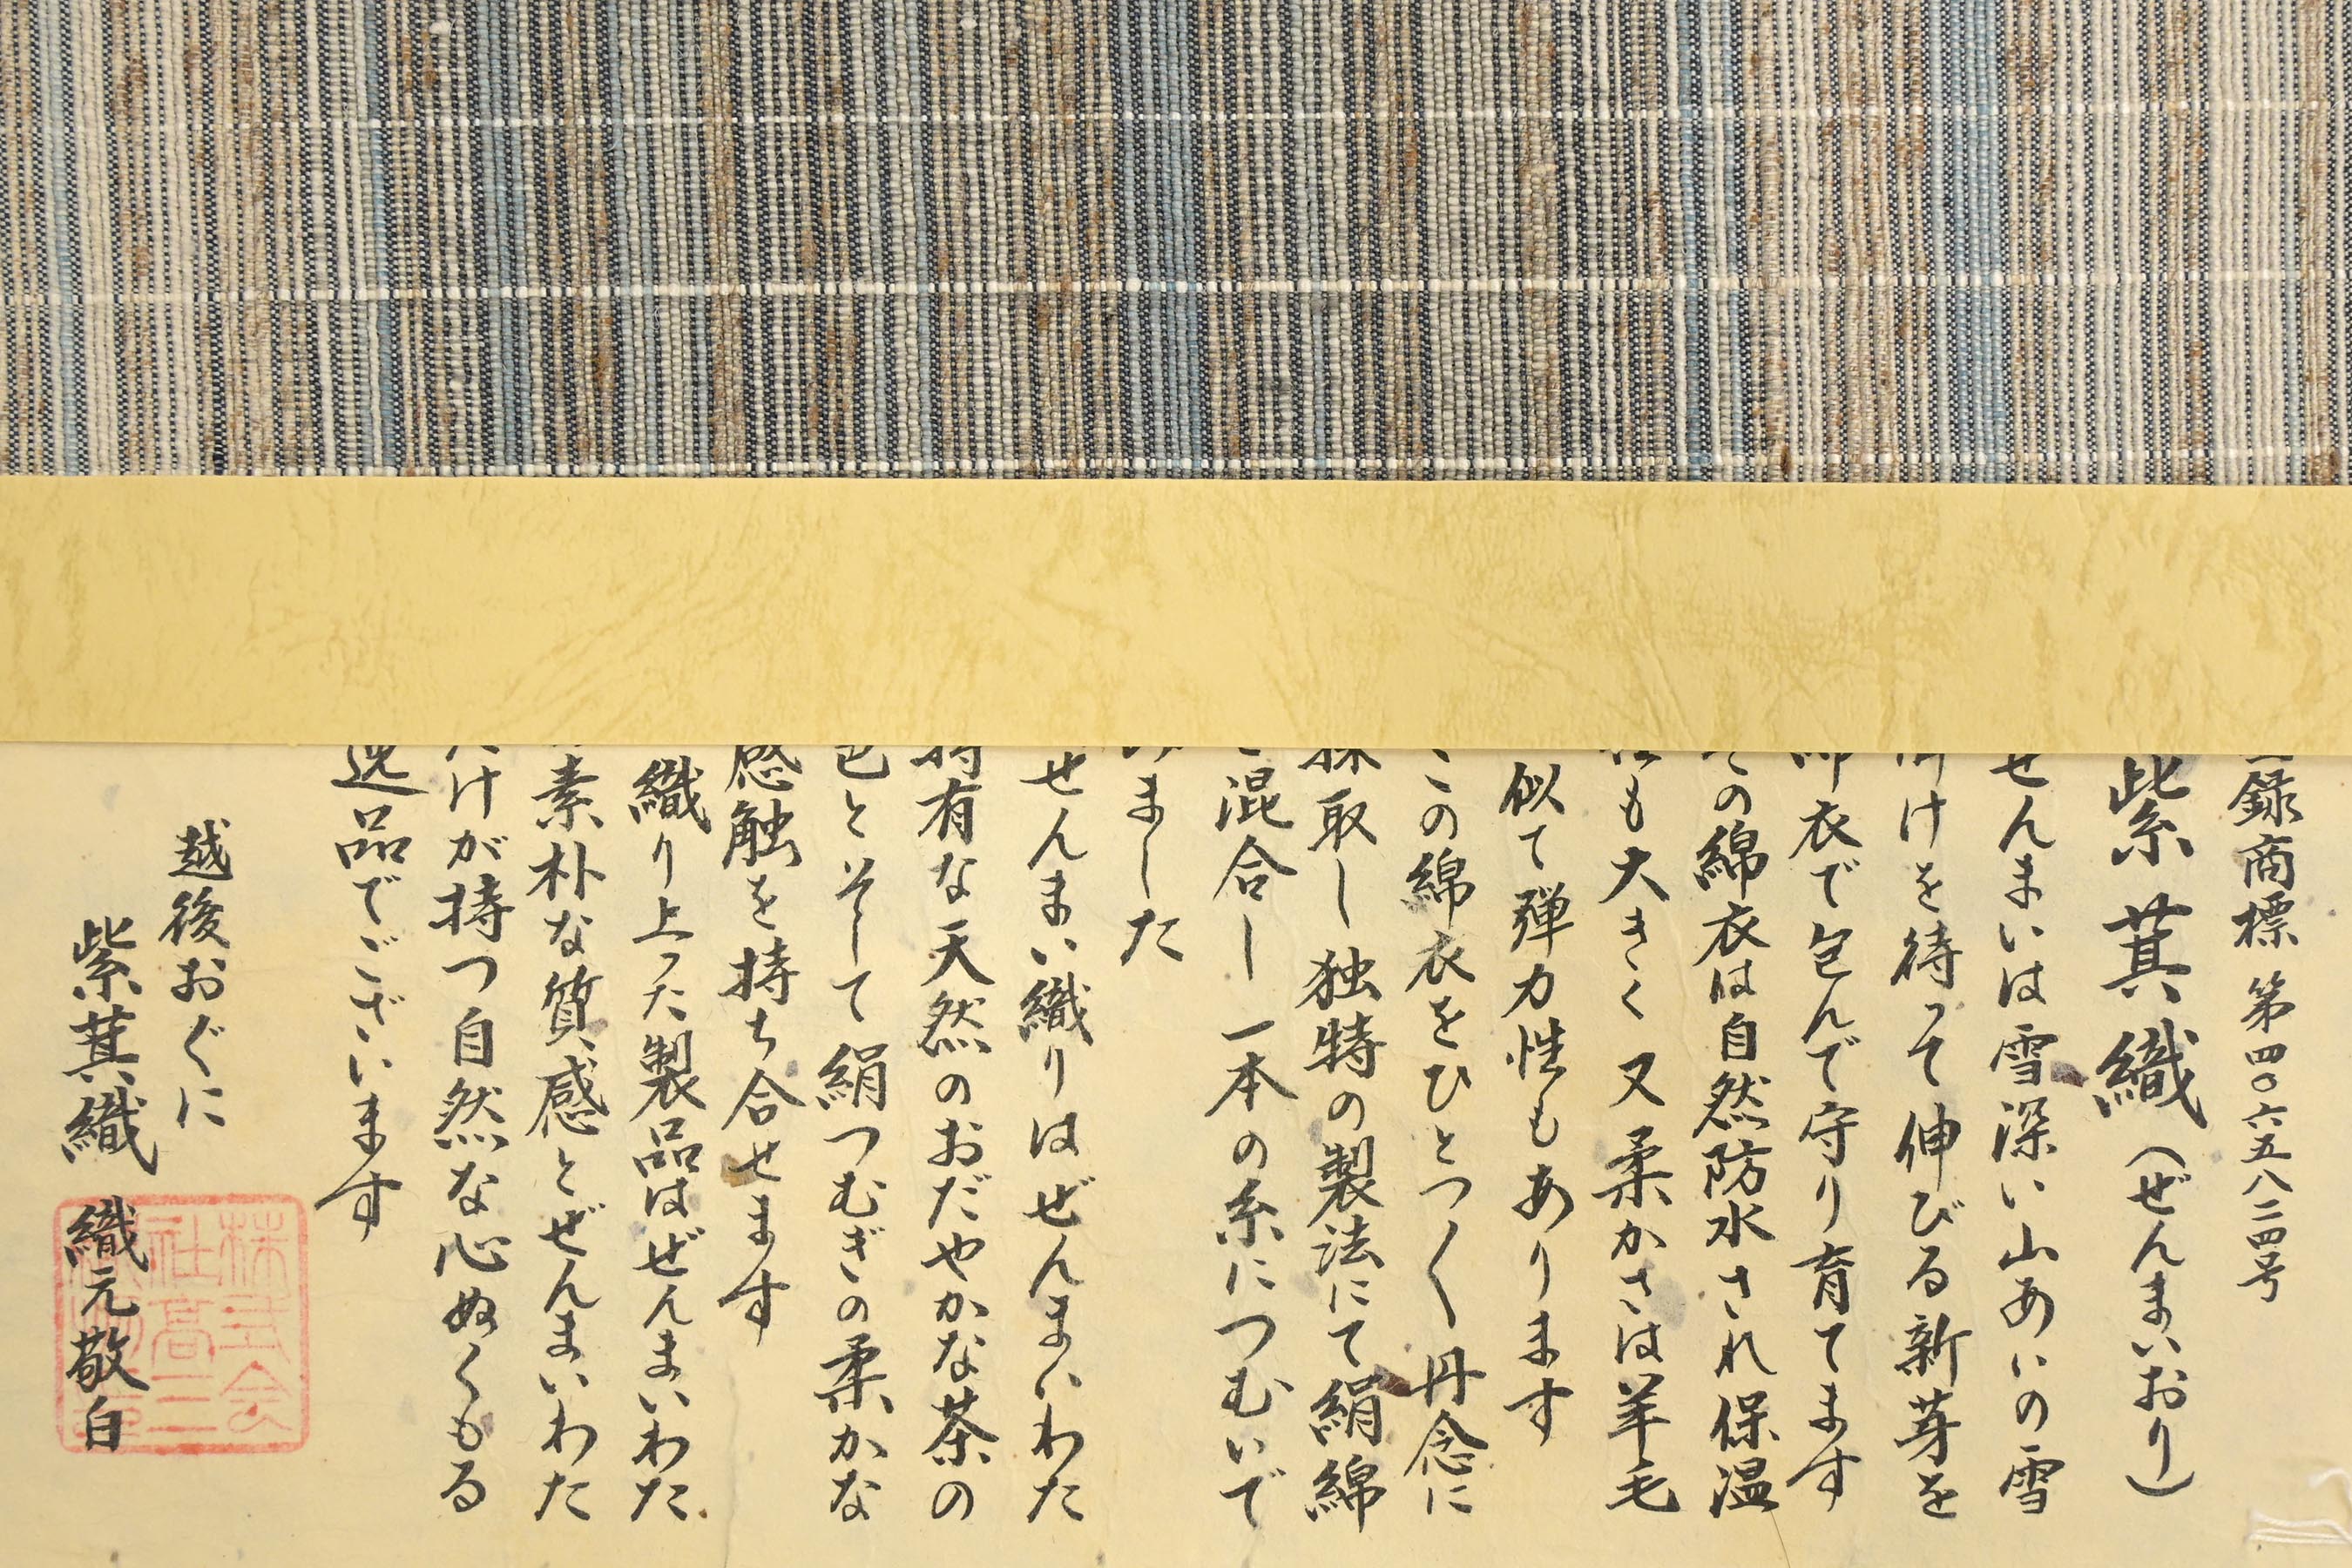 録商標 第四〇六五八二四号
紫萁織(ぜんまいおり)
ぜんまいは雪深い山あいの雪
解けを待って伸びる新芽を
綿衣で包んで守り育てます
その綿衣は自然防水され保温
性も大きく又柔かさは羊毛
似て弾力性もあります
この綿衣をひとつ〱丹念に
採取し独特の製法にて絹綿
と混合し一本の糸につむいで
みました
ぜんまい織りはぜんまいわた
特有な天然のおだやかな茶の
色とそして絹つむぎの柔かな
感触を持ち合せます
織り上った製品はぜんまいわた
素朴な質感とぜんまいわた
だけが持つ自然な心ぬくもる
逸品でございます
越後おぐに
紫萁織 織元敬白
株式会
社高三